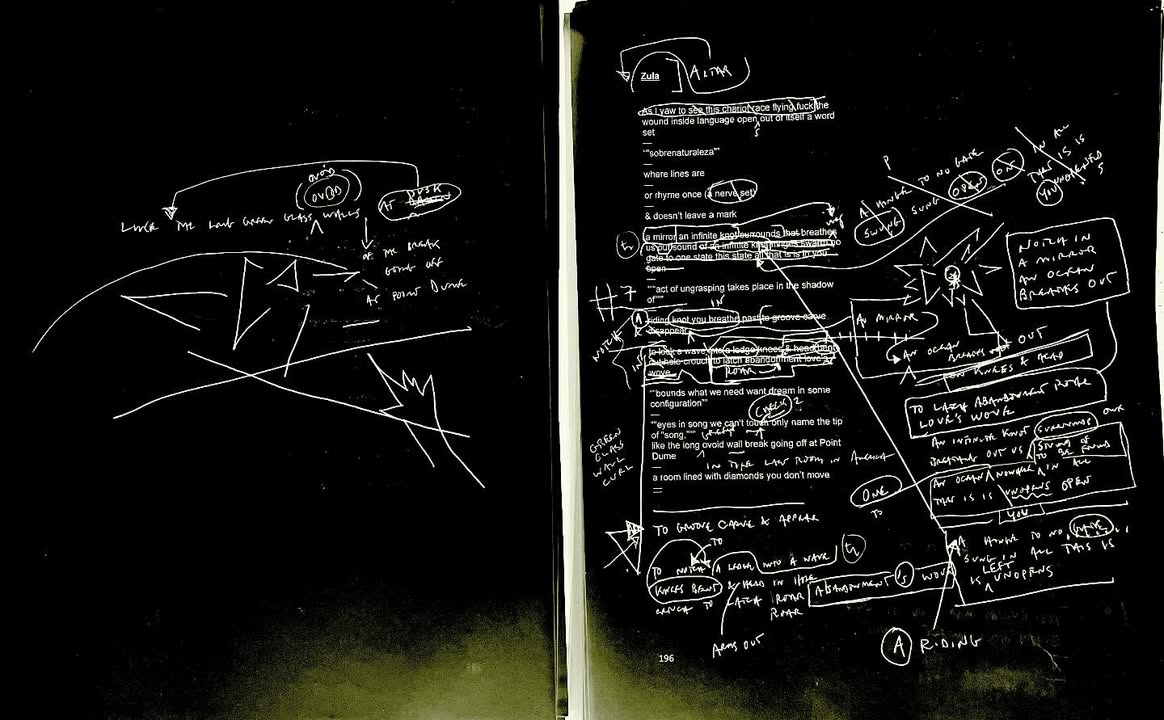 AT DUSK
OVOID
(OVOID)
LIKE THE LONG GREEN GLASS WALLS
AT POINT DUME
Zula
ALTAR
As I yaw to see this chariot race flying fuck the
wound inside language open out of itself a word
s
set
""sobrenaturaleza""
where lines are
or rhyme once (a nerve set)
& doesn't leave a mark
a mirror an infinite knot surrounds that breathes
us out sound of an infinite knot hinges swarm no
gate to one state this state all that is is in you
open
""act of ungrasping takes place in the shadow
of""
IN
riding knot you breathe past to groove carve
disappear
to lock a wave into a ledge knees & head bent
to latch abandonment love a
wove
ROAR
""bounds what we need want dream in some
configuration""
CHECK?
""eyes in song we can't touch only name the tip
of "song,""
like the long ovoid wall break going off at Point
Dume
IN THE LAST ROOM IN AUGUST
a room lined with diamonds you don't move
#7
NOTCH
IN
GREEN
GLASS
WALL
CURL
A HINGE TO NO GATE
SWUNG
SUNG
OPEN
ONE
IN ALL
THAT IS IS
YOU
NOTCH IN
A MIRROR
AN OCEAN
BREATHES OUT
A MIRROR
AN OCEAN
BREATHES OUT
ON KNEES & HEAD
TO LATCH ABANDONMENT ROAR
LOVE'S WOVE
AN INFINITE KNOT SURROUNDS OUR
BREATHES OUT US
AN OCEAN NOWHERE IN ALL
THAT IS IS UNOPENS OPEN
YOU
ONE
TO
A HINGE TO NO GATE
SUNG IN ALL THAT IS
LEFT
IS UNOPENS
TO GROOVE CARVE & APPEAR
TO
TO NOTCH A LEDGE INTO A WAVE
KNEES BENT & HEAD IN HOLE
CROUCH TO LATCH ROAR
ROAR
ABANDONMENT IS WOVE
ARMS OUT
A RIDING
196